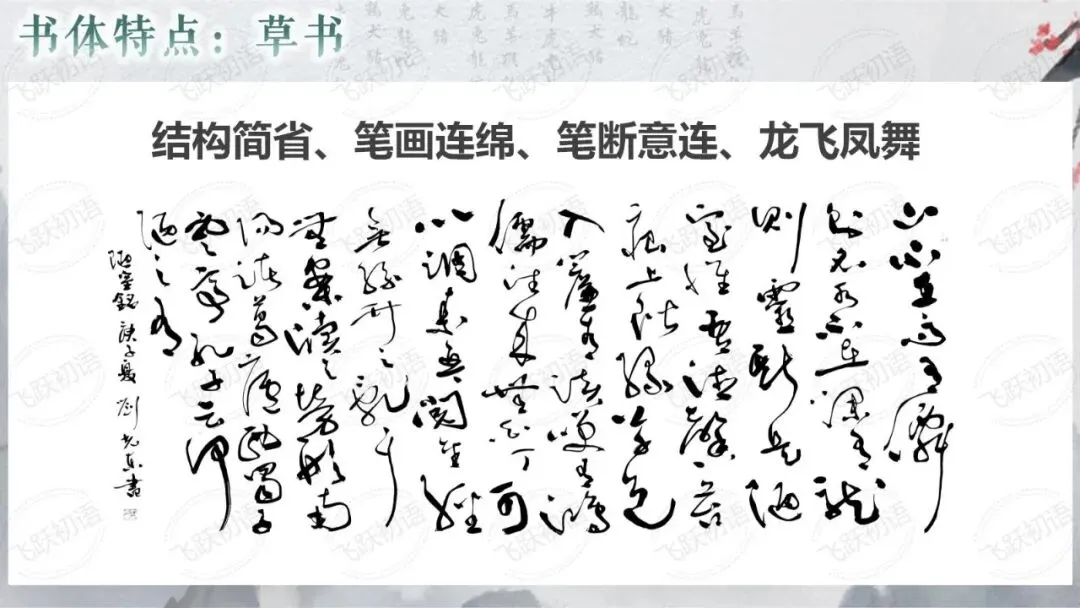 书体特点：草书
结构简省、笔画连绵、笔断意连、龙飞凤舞
山不在高有僊
则名水不在深有龙
则靈斯是陋
室惟吾德馨苔
痕上阶绿草色
入簾青谈笑有鸿
儒往来無白丁可
以调素琴阅金經
無丝竹之乱耳
無案牍之劳形南
阳诸葛廬西蜀子
雲亭孔子云何
陋之有
陋室銘 庚子夏 刘 書
飞跃初语